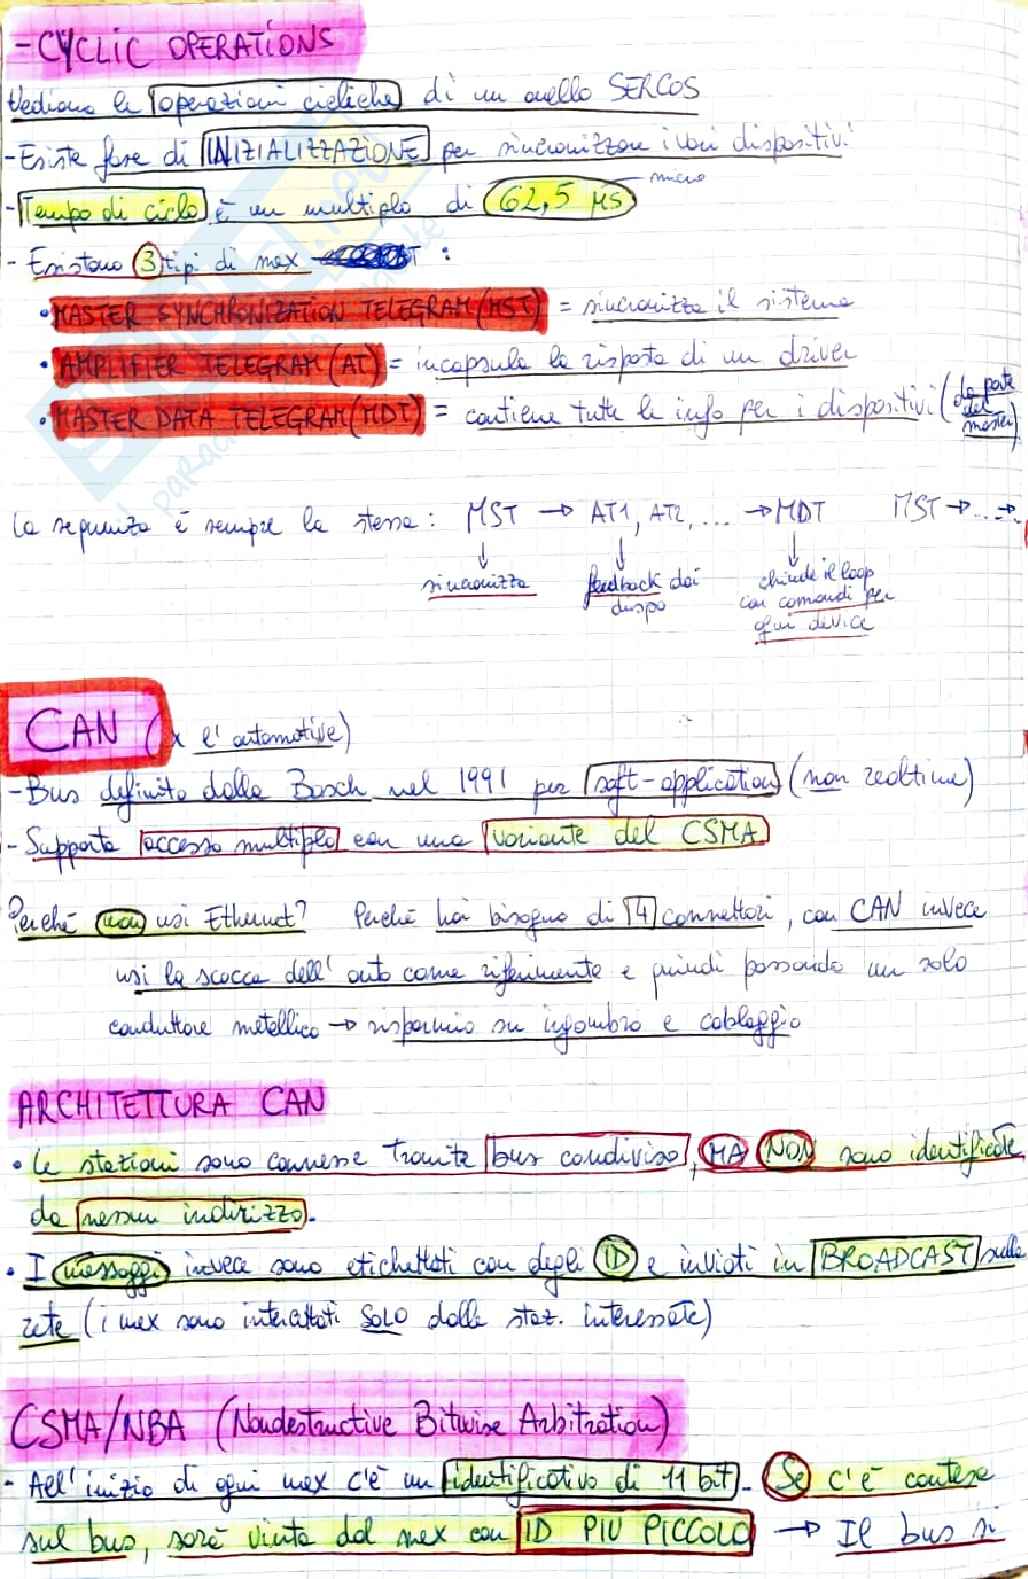 - CYCLIC OPERATIONS
Vediamo le operazioni cicliche di un anello SERCOS
- Esiste fase di INIZIALIZZAZIONE per sincronizzare i vari dispositivi
- Tempo di ciclo è un multiplo di 62,5 μs micro
- Esistono 3 tipi di mex :
• MASTER SYNCHRONIZATION TELEGRAM (MST) = sincronizza il sistema
• AMPLIFIER TELEGRAM (AT) = incapsula la risposta di un driver
• MASTER DATA TELEGRAM (MDT) = contiene tutte le info per i dispositivi (da parte del master)
La sequenza è sempre la stessa : MST → AT1, AT2, ... → MDT MST → ... →
sincronizza feedback dai dispo chiude il loop con comandi per ogni device
CAN (x l'automotive)
- Bus definito dalla Bosch nel 1991 per soft-application (non realtime)
- Supporta accesso multiplo con una variante del CSMA
Perché non usi Ethernet? Perché hai bisogno di 4 connettori, con CAN invece
usi la scocca dell'auto come riferimento e quindi passando un solo
conduttore metallico → risparmio su ingombro e cablaggio
ARCHITETTURA CAN
• Le stazioni sono connesse tramite bus condiviso, MA NON sono identificate
da nessun indirizzo.
• I messaggi invece sono etichettati con degli ID e inviati in BROADCAST sulla
rete (i mex sono intercettati SOLO dalle staz. interessate)
CSMA/NBA (Nondestructive Bitwise Arbitration)
- All'inizio di ogni mex c'è un identificativo di 11 bit. Se c'è contesa
sul bus, sarà vinta dal mex con ID PIU PICCOLO → Il bus si